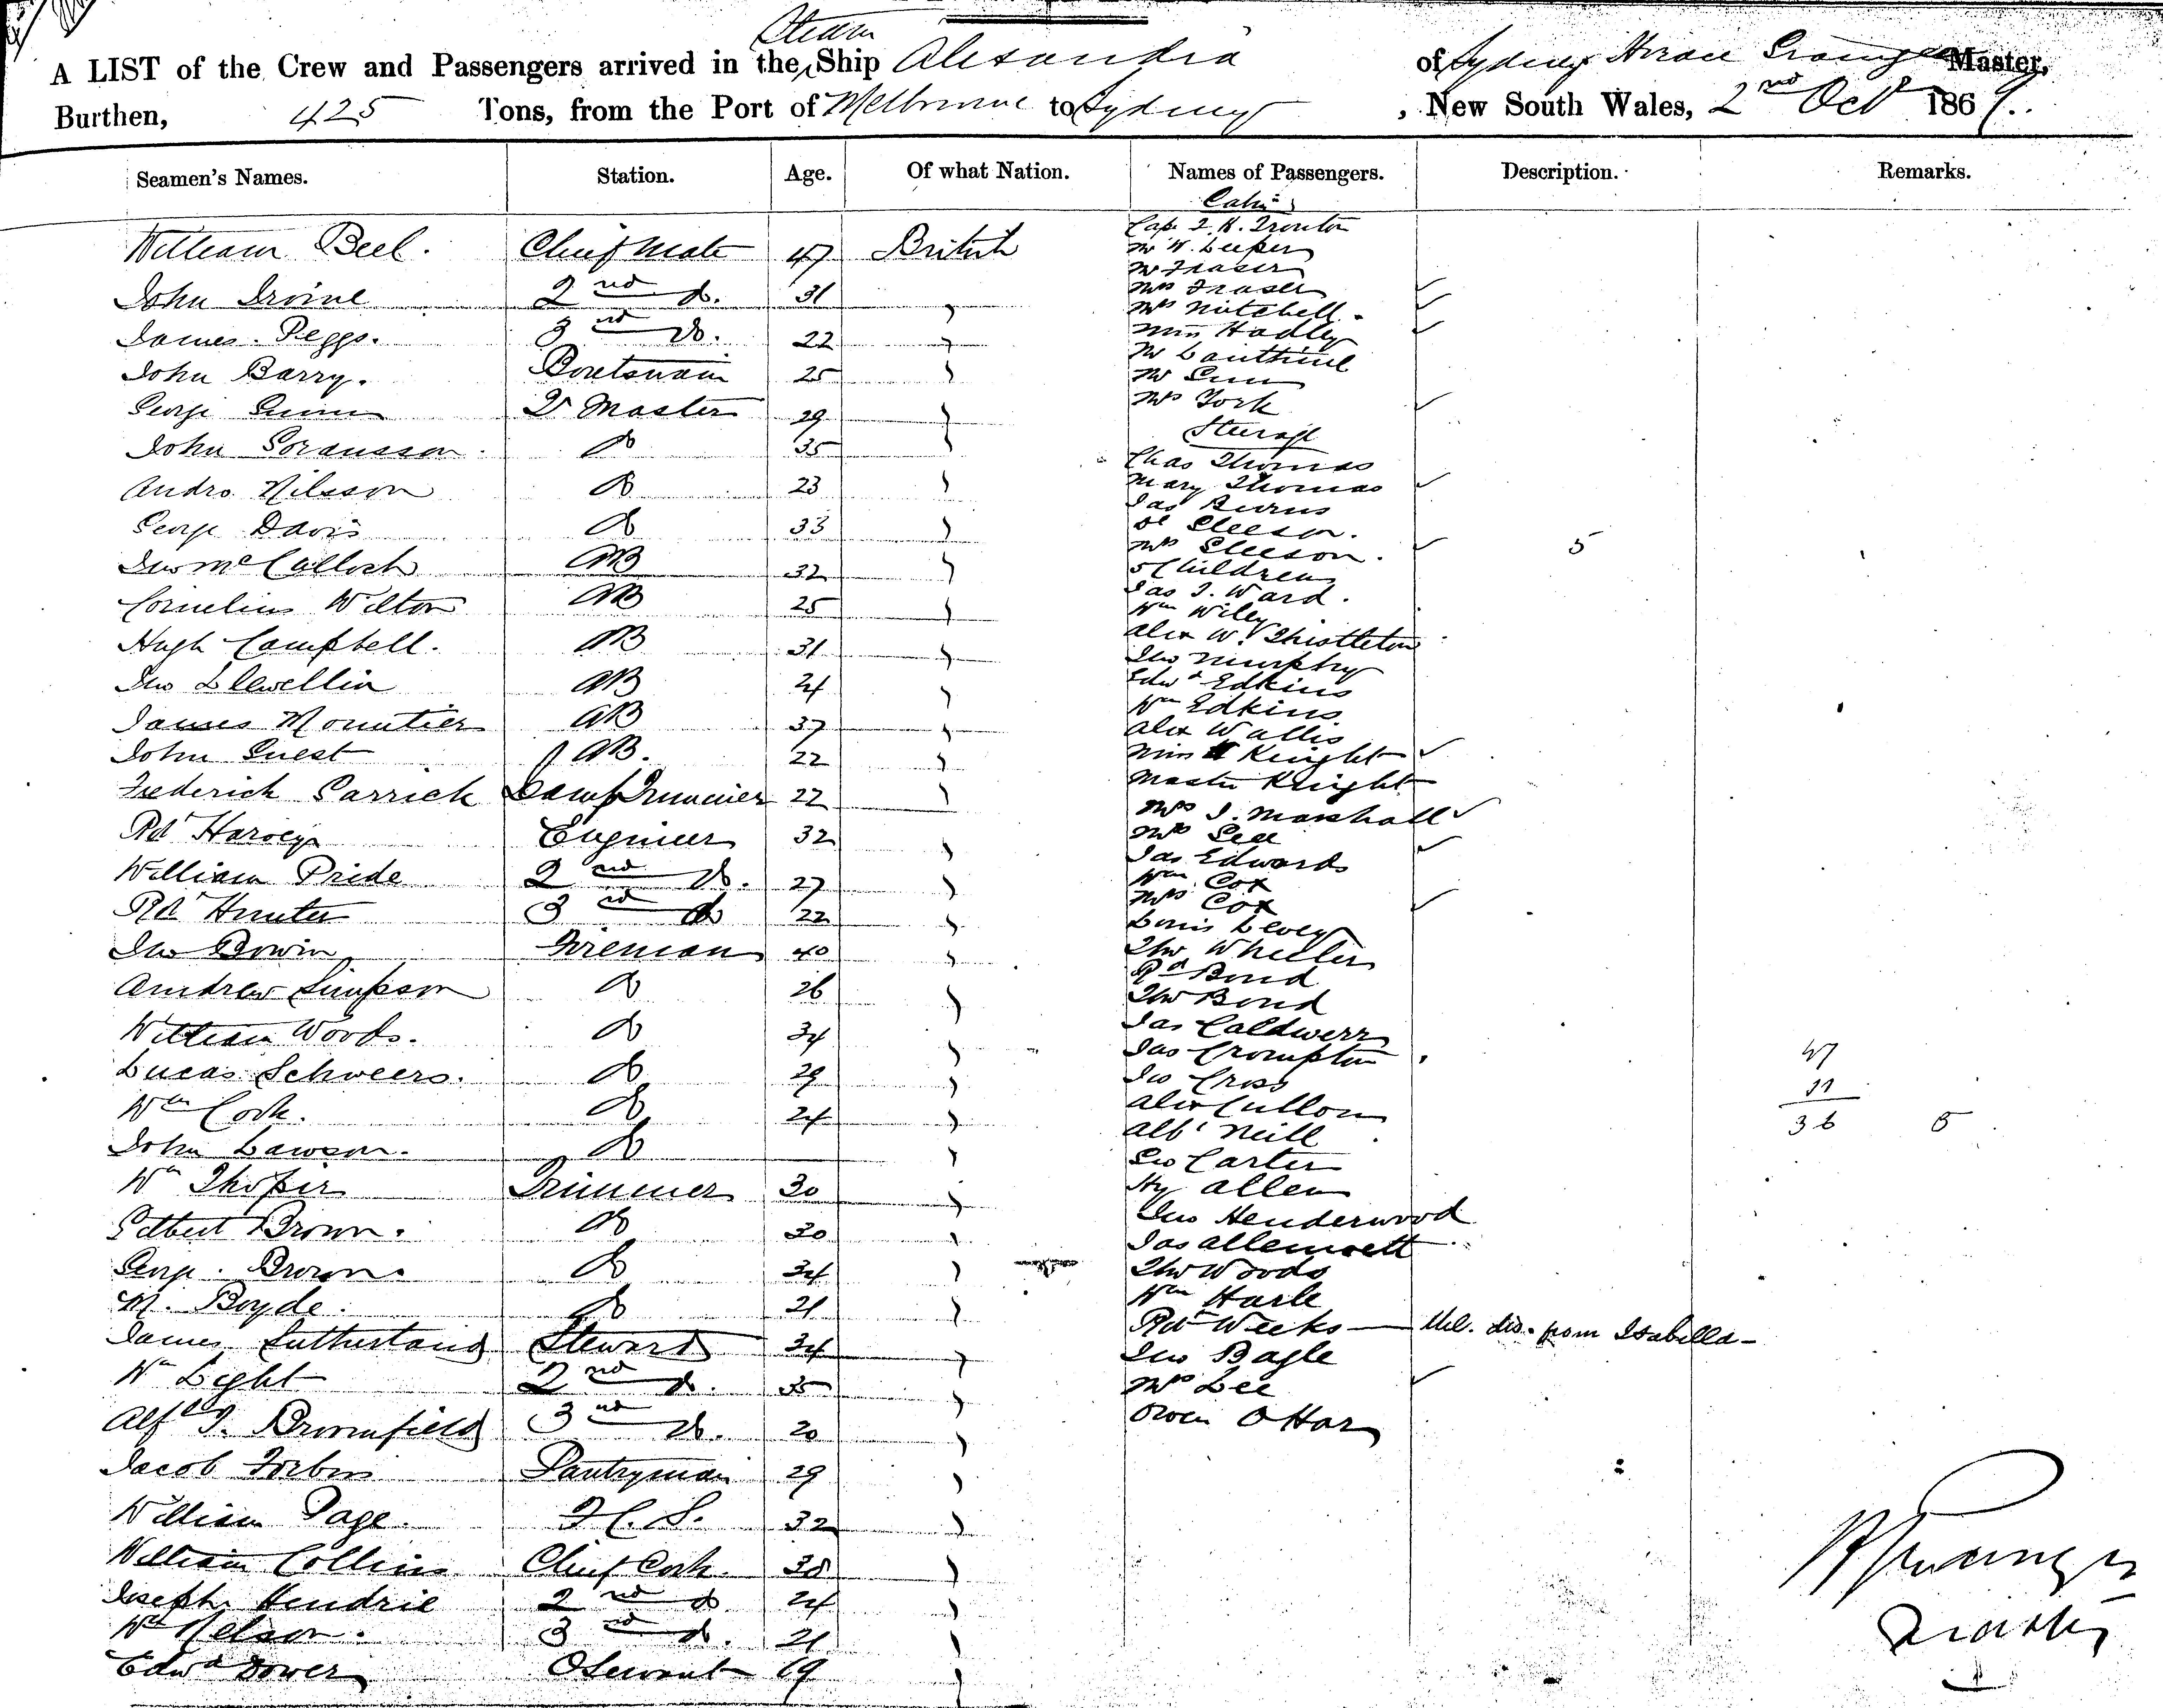 Steam
A LIST of the Crew and Passengers arrived in the Ship Alexandria of Sydney Master,
Burthen, 425 Tons, from the Port of Melbourne to Sydney, New South Wales, 2nd Oct 1869.
Seamen's Names. Station. Age. Of what Nation. Names of Passengers. Description. Remarks.
William Beel. Chief Mate 47 British
John Irvine 2nd do. 31 "
James Peggs. 3rd do. 22 "
John Barry. Boatswain 25 "
George Gunn Qr Master 29 "
John Soransson do 35 "
Andro Nilsson do 23 "
George Davis do 33 "
Jno McCulloch AB 32 "
Cornelius Wilton AB 25 "
Hugh Campbell. AB 31 "
Jno Llewellin AB 24 "
James Mountier AB 37 "
John Guest AB. 22 "
Frederick Garrick Lamp Trimmer 22 "
Rd Harvey Engineer 32 "
William Pride 2nd do. 27 "
Rd Hunter 3rd do 22 "
Jno Bowin Fireman 40 "
Andrew Simpson do 26 "
William Woods. do 34 "
Lucas Schweers. do 29 "
Wm Cook. do 24 "
John Lawson. do "
Wm Trimmer 30 "
Gilbert Brown. do 30 "
George Brown do 34 "
M. Boyde. do 21 "
James Sutherland Steward 34 "
Wm Light 2nd do. 35 "
Alfd J. Broomfield 3rd do. 20 "
Jacob Forbes Pantryman 29 "
William Page. F.C.S. 32 "
William Collins Chief Cook. 38 "
Joseph Hendrie 2nd do 24 "
Wm Nelson. 3rd do. 21 "
Edwd Dower O Servant 19 "
Cabin
Cap. F. H. Trouton
Mr W. Leeper
Mr Fraser
Mrs Fraser
Mrs Mitchell.
Miss Hadley
Mr
Mr Gunn
Mrs York
Steerage
Chas Thomas
Mary Thomas
Jas Burns
Gleeson.
Mrs Gleeson. 5
5 Children
Jas J. Ward.
Wm Wiley
Alex W. Thistleton
Jno Murphy
Edwd Edkins
Wm Edkins.
Alex Wallis
Miss Knight
Master Knight
Mrs J. Marshall
Mrs Lee
Jas Edwards
Wm Cox
Mrs Cox
Louis Levey
Thos Wheeler
Rd Bond
Thos Bond
Jas Caldwell
Jas Crompton
Jno Cross
Alex Cullon
Albt Neill
Geo Carter
Hy Allen
Jno Henderwood
Jas
Thos Woods
Wm Harle
Rd Weeks — dis. from Isabella
Jno Bagle
Mrs Lee
Owen OHar
47
11
36 5
Master